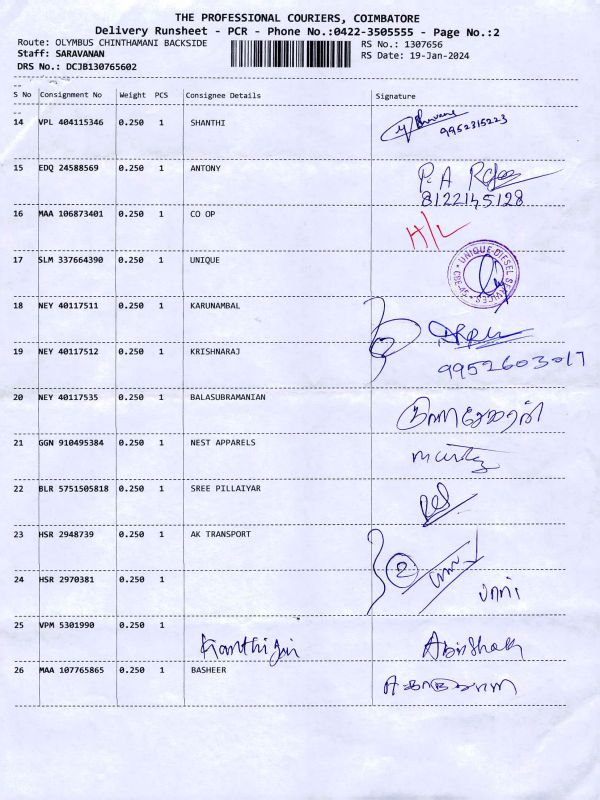 THE PROFESSIONAL COURIERS, COIMBATORE
Delivery Runsheet - PCR - Phone No.:0422-3505555 - Page No.:2
Route: OLYMBUS CHINTHAMANI BACKSIDE
RS No.: 1307656
Staff: SARAVANAN
RS Date: 19-Jan-2024
DRS No.: DCJB130765602
S No Consignment No Weight PCS Consignee Details Signature
14 VPL 404115346 0.250 1 SHANTHI
9952315223
15 EDQ 24588569 0.250 1 ANTONY P.A
8122145128
16 MAA 106873401 0.250 1 CO OP H/L
17 SLM 337664390 0.250 1 UNIQUE
UNIQUE DIESEL SERVICES
18 NEY 40117511 0.250 1 KARUNAMBAL
2
19 NEY 40117512 0.250 1 KRISHNARAJ 9952603017
20 NEY 40117535 0.250 1 BALASUBRAMANIAN
21 GGN 910495384 0.250 1 NEST APPARELS
22 BLR 5751505818 0.250 1 SREE PILLAIYAR
23 HSR 2948739 0.250 1 AK TRANSPORT
2
24 HSR 2970381 0.250 1
25 VPM 5301990 0.250 1 Abishak
26 MAA 107765865 0.250 1 BASHEER